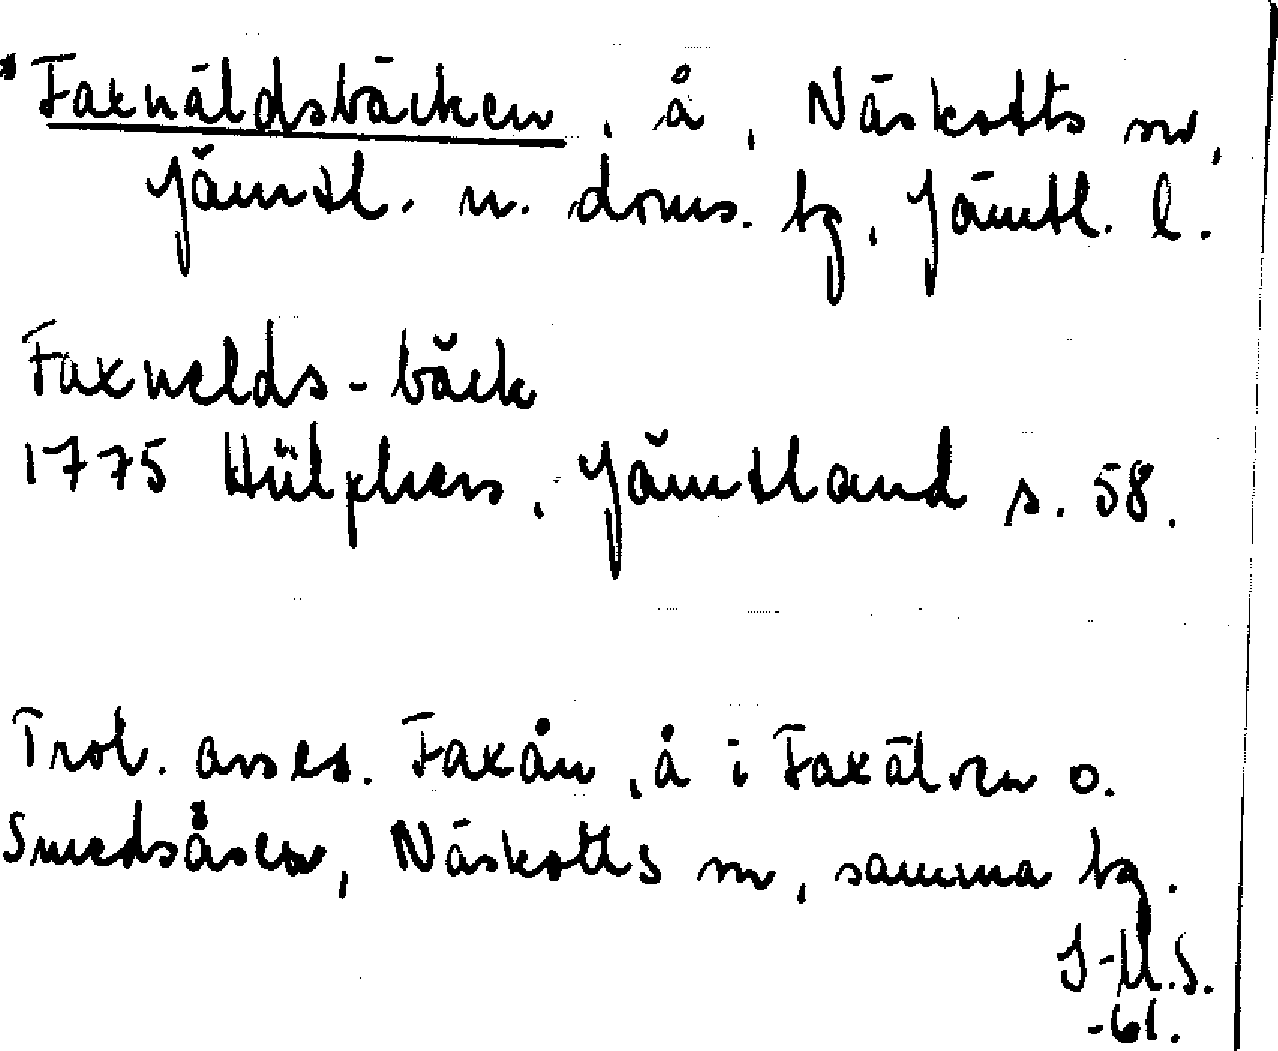 *Faxnäldsbäcken, å, Näskotts sn,
Jämtl. n. doms. tg, Jämtl. l.
Faxnelds-bäck
1775 Hülphers, Jämtland s. 58.
Trol. avses. Faxån, å i Faxälven o.
Smedsåsen, Näskotts sn, samma tg.
I-M.S.
-61.